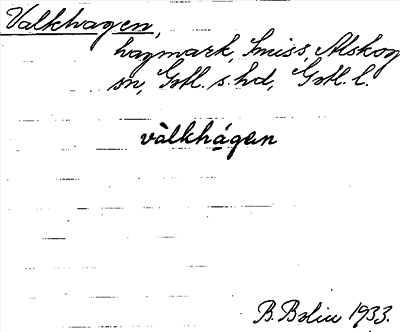 Valkhagen,
hagmark, Smiss, Alskog
sn, Gotl. s. hd, Gotl. l.
vàlkhá̱gen
B. Bolin 1933.